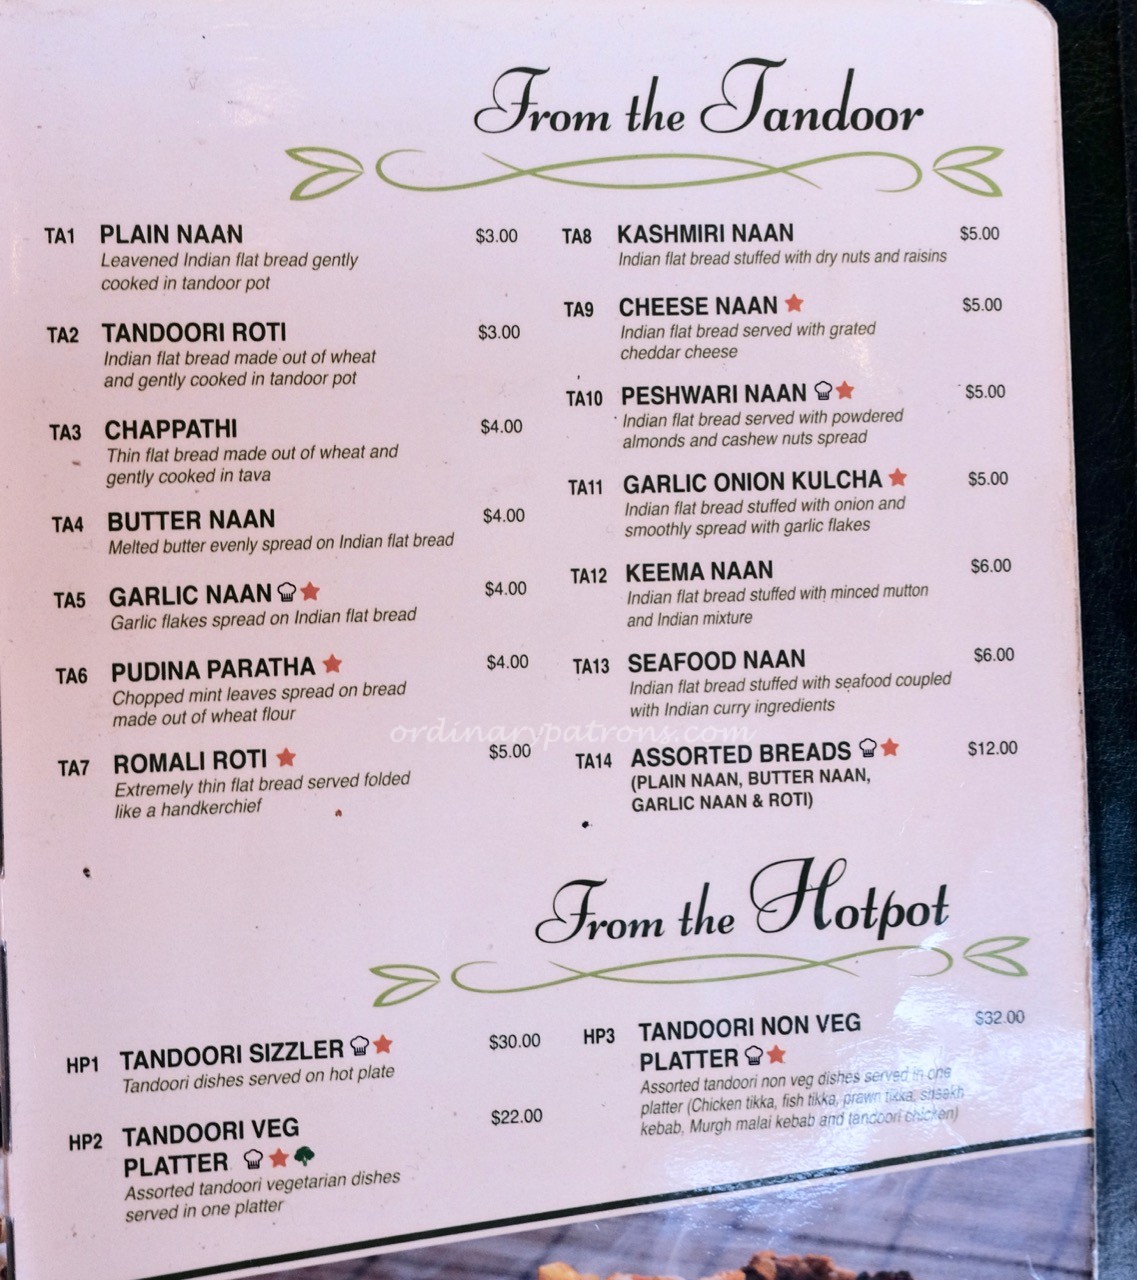 From the Tandoor
TA1 PLAIN NAAN $3.00
Leavened Indian flat bread gently
cooked in tandoor pot
TA2 TANDOORI ROTI $3.00
Indian flat bread made out of wheat
and gently cooked in tandoor pot
TA3 CHAPPATHI $4.00
Thin flat bread made out of wheat and
gently cooked in tava
TA4 BUTTER NAAN $4.00
Melted butter evenly spread on Indian flat bread
TA5 GARLIC NAAN $4.00
Garlic flakes spread on Indian flat bread
TA6 PUDINA PARATHA $4.00
Chopped mint leaves spread on bread
made out of wheat flour
TA7 ROMALI ROTI $5.00
Extremely thin flat bread served folded
like a handkerchief
TA8 KASHMIRI NAAN $5.00
Indian flat bread stuffed with dry nuts and raisins
TA9 CHEESE NAAN $5.00
Indian flat bread served with grated
cheddar cheese
TA10 PESHWARI NAAN $5.00
Indian flat bread served with powdered
almonds and cashew nuts spread
TA11 GARLIC ONION KULCHA $5.00
Indian flat bread stuffed with onion and
smoothly spread with garlic flakes
TA12 KEEMA NAAN $6.00
Indian flat bread stuffed with minced mutton
and Indian mixture
TA13 SEAFOOD NAAN $6.00
Indian flat bread stuffed with seafood coupled
with Indian curry ingredients
TA14 ASSORTED BREADS $12.00
(PLAIN NAAN, BUTTER NAAN,
GARLIC NAAN & ROTI)
ordinarypatrons.com
From the Hotpot
HP1 TANDOORI SIZZLER $30.00
Tandoori dishes served on hot plate
HP2 TANDOORI VEG $22.00
PLATTER
Assorted tandoori vegetarian dishes
served in one platter
HP3 TANDOORI NON VEG $32.00
PLATTER
Assorted tandoori non veg dishes served in one
platter (Chicken tikka, fish tikka, prawn tikka, sheekh
kebab, Murgh malai kebab and tandoori chicken)